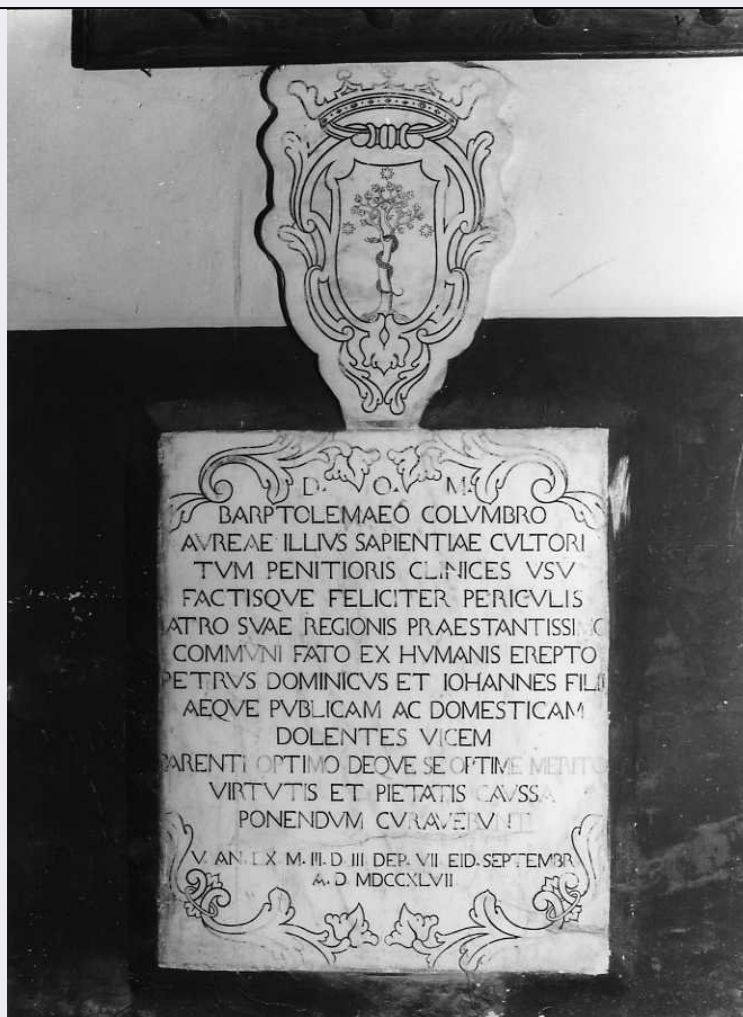 D. O. M.
BARPTOLEMAEO COLVMBRO
AVREAE ILLIVS SAPIENTIAE CVLTORI
TVM PENITIORIS CLINICES VSV
FACTISQVE FELICITER PERICVLIS
IATRO SVAE REGIONIS PRAESTANTISSIMO
COMMVNI FATO EX HVMANIS EREPTO
PETRVS DOMINICVS ET IOHANNES FILII
AEQVE PVBLICAM AC DOMESTICAM
DOLENTES VICEM
PARENTI OPTIMO DEQVE SE OPTIME MERITO
VIRTVTIS ET PIETATIS CAVSSA
PONENDVM CVRAVERVNT
V. AN. LX M. III. D III DEP. VII EID. SEPTEMBR
A. D MDCCXLVII